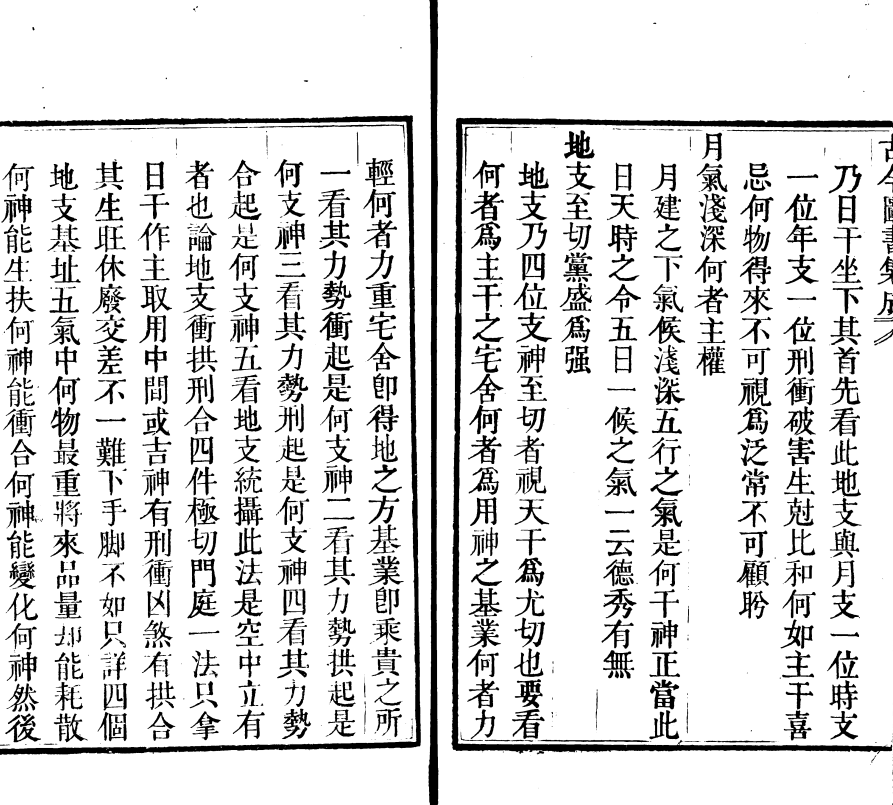 古今圖書集成
乃日干坐下其首先看此地支與月支一位時支
一位年支一位刑衝破害生尅比和何如主干喜
忌何物得來不可視爲泛常不可顧盼
月氣淺深何者主權
月建之下氣候淺深五行之氣是何干神正當此
日天時之令五日一候之氣一云德秀有無
地支至切黨盛爲强
地支乃四位支神至切者視天干爲尤切也要看
何者爲主干之宅舍何者爲用神之基業何者力
輕何者力重宅舍卽得地之方基業卽乘貴之所
一看其力勢衝起是何支神二看其力勢拱起是
何支神三看其力勢刑起是何支神四看其力勢
合起是何支神五看地支統攝此法是空中立有
者也論地支衝拱刑合四件極切門庭一法只拿
日干作主取用中間或吉神有刑衝凶煞有拱合
其生旺休廢交差不一難下手脚不如只詳四個
地支基址五氣中何物最重將來品量却能耗散
何神能生扶何神能衝合何神能變化何神然後